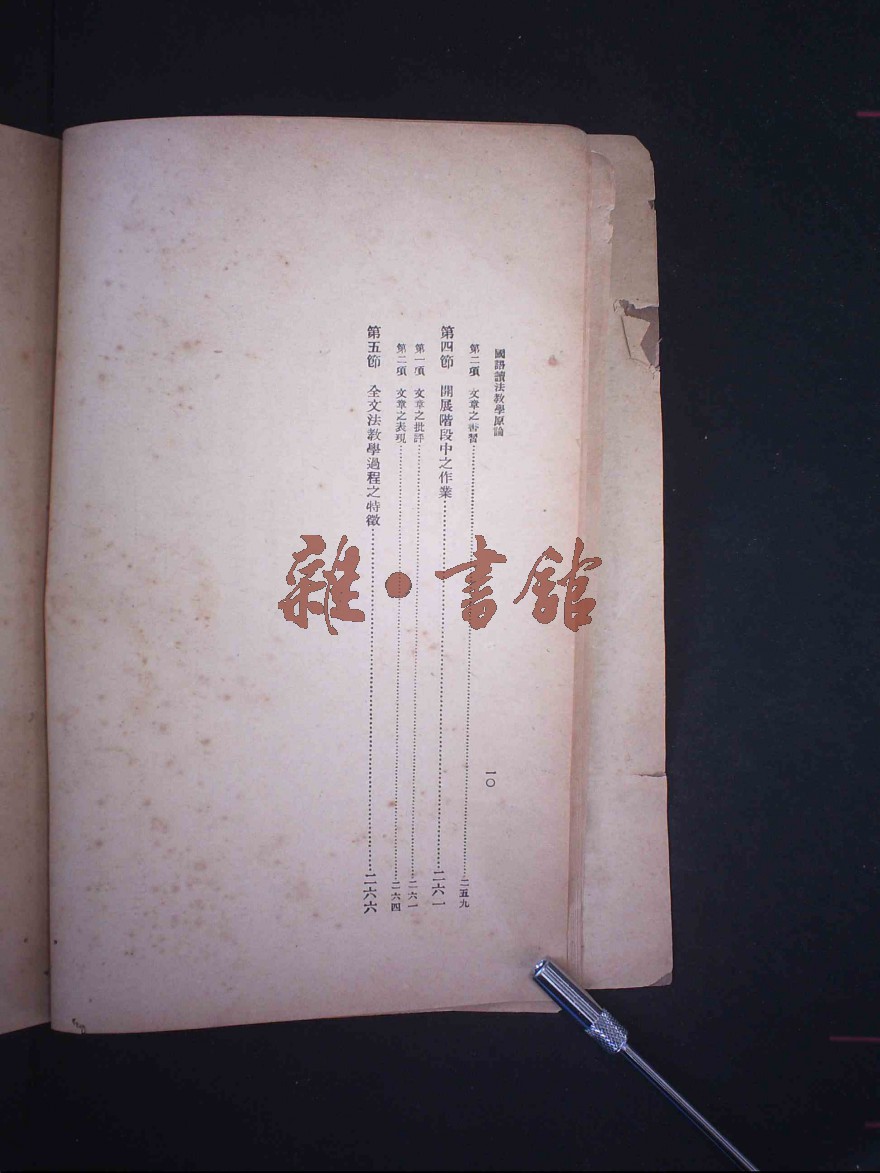 國語讀法教學原論
一〇
第二項 文章之書習……二五九
第四節 開展階段中之作業……二六一
第一項 文章之批評……二六一
第二項 文章之表現……二六四
第五節 全文法教學過程之特徵……二六六
雜·書館